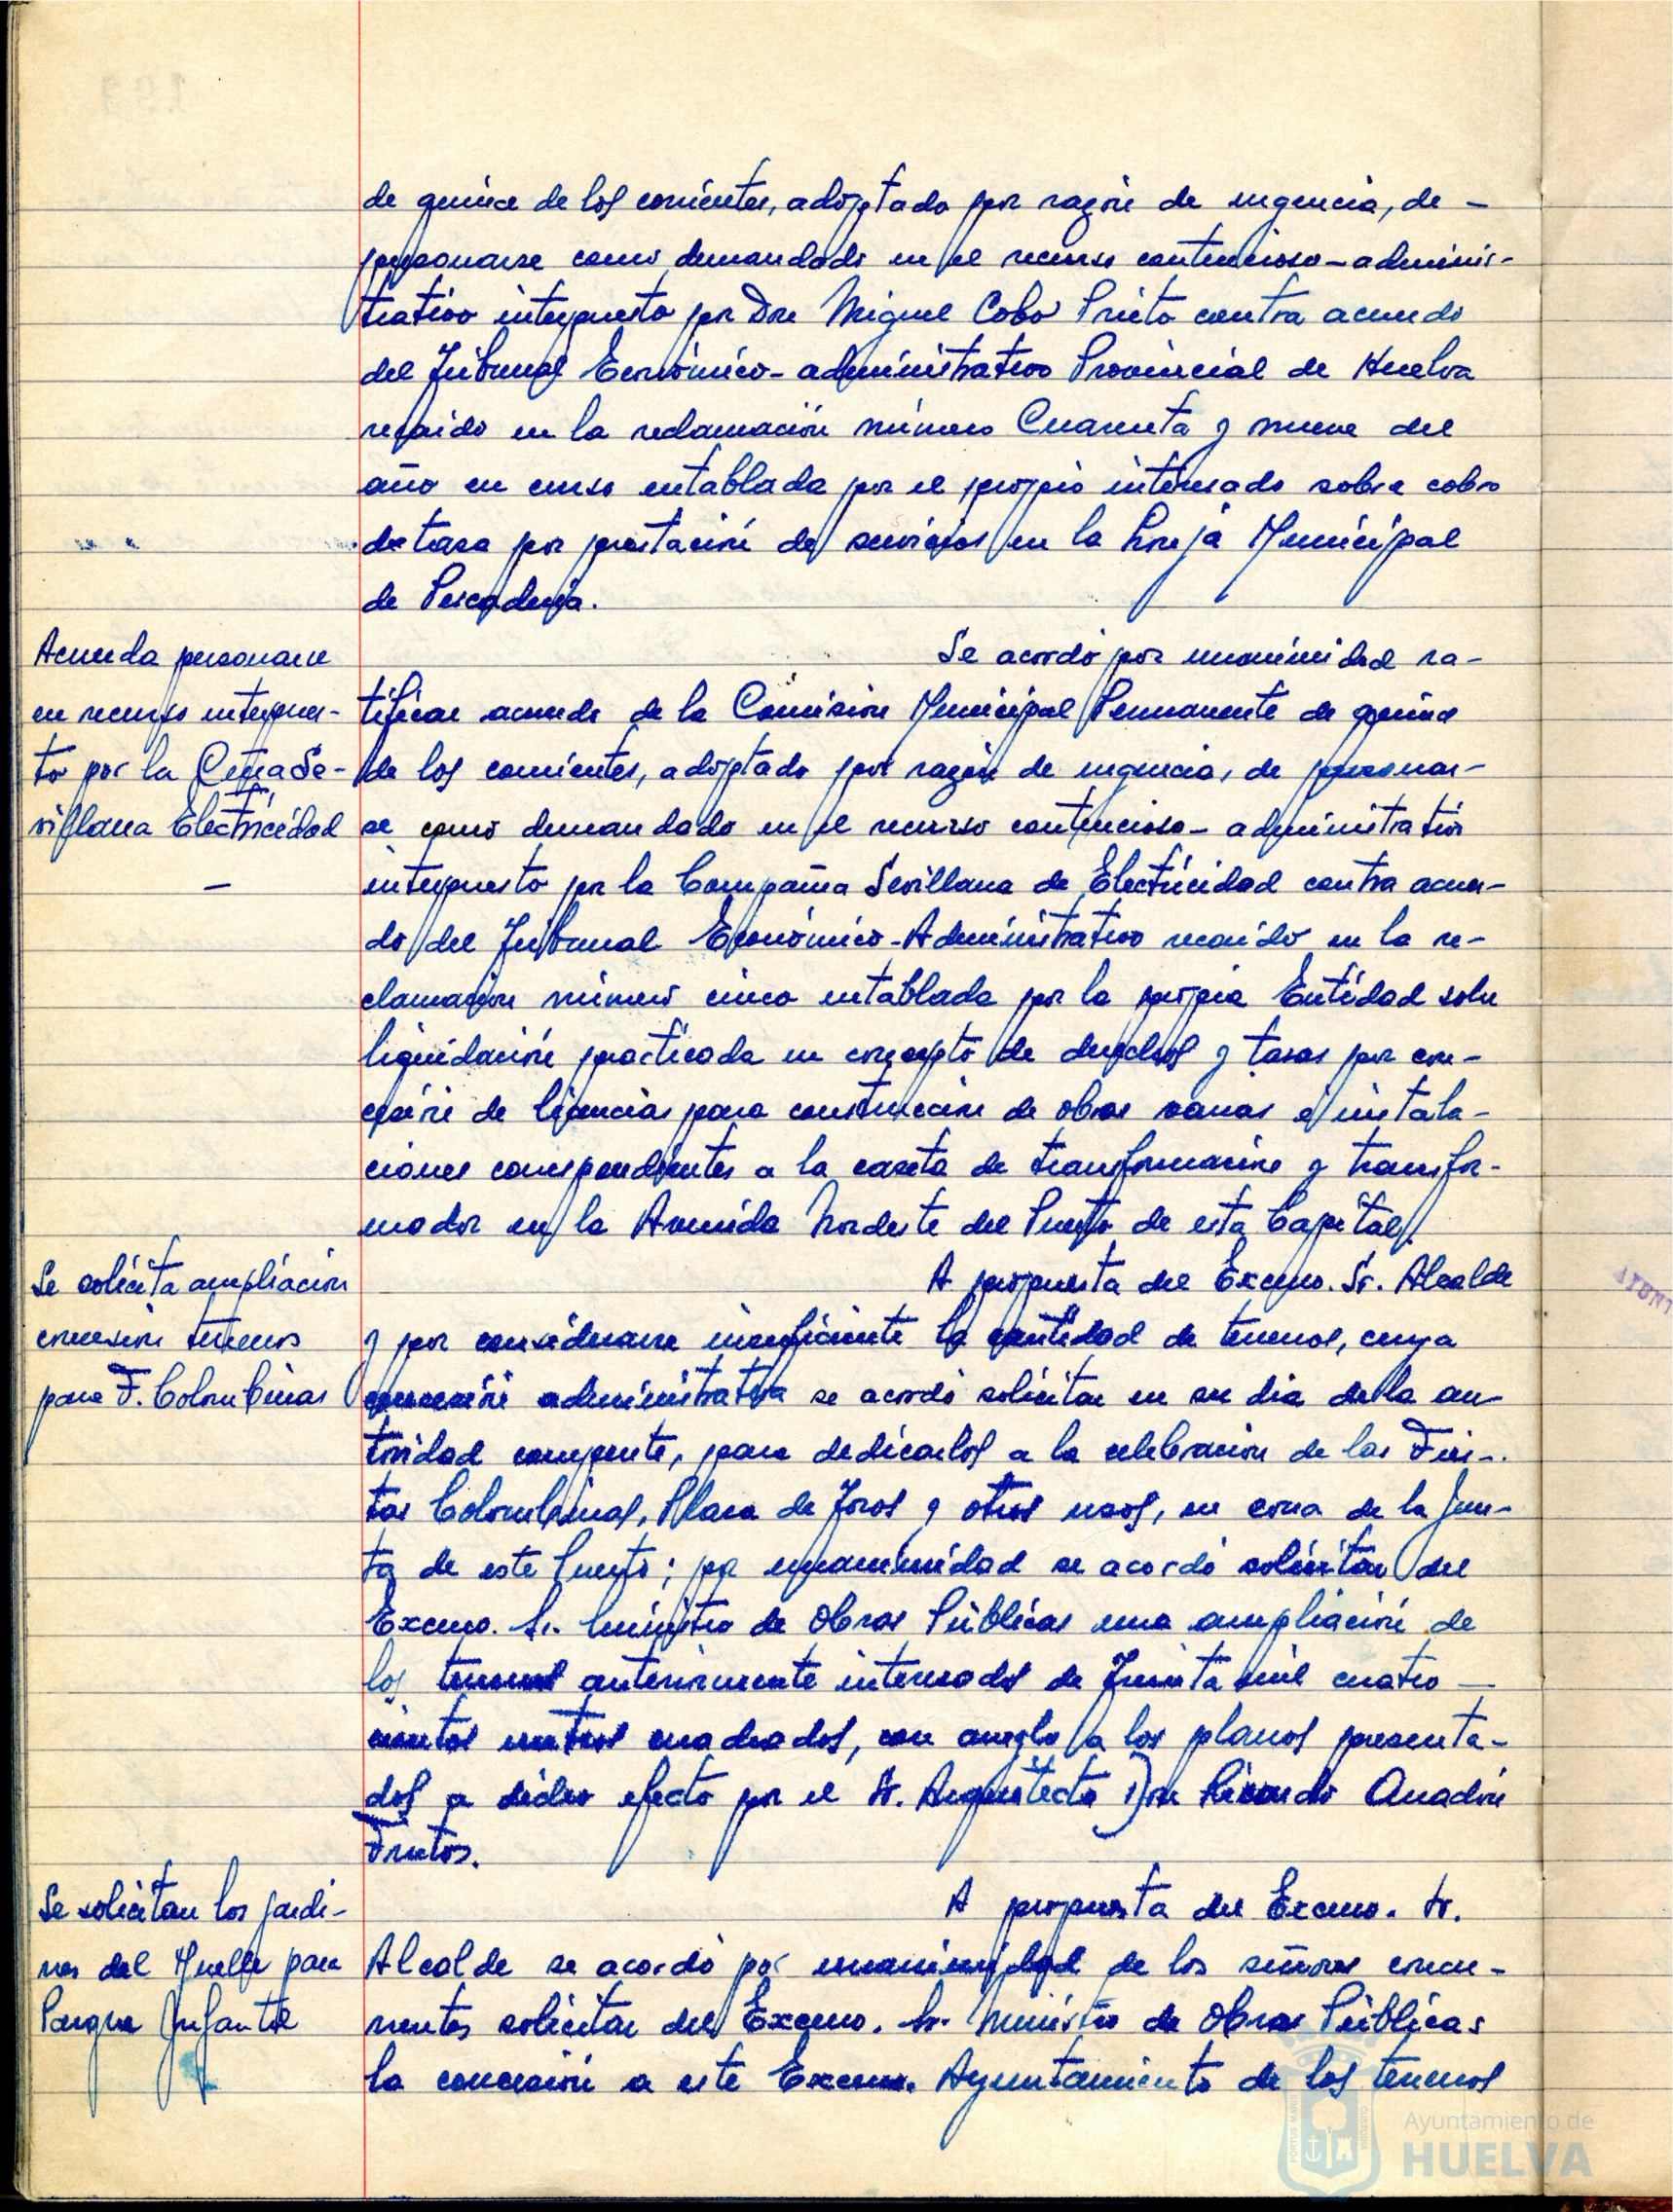 de quince de los corrientes, adoptado por razón de urgencia, de -
personarse como demandado en el recurso contencioso-adminis-
trativo interpuesto por Don Miguel Cobo Prieto contra acuerdo
del Tribunal Económico-administrativo Provincial de Huelva
recaido en la reclamación número Cuarenta y nueve del
año en curso entablada por el propio interesado sobre cobro
de tasa por prestación de servicios en la Lonja Municipal
de Pescadería.
Acuerda personarse
en recurso interpues-
to por la Cñía Se-
villana Electricidad
-
Se acordó por unanimidad ra-
tificar acuerdo de la Comisión Municipal Permanente de quince
de los corrientes, adoptado por razón de urgencia, de personar-
se como demandado en el recurso contencioso-administrativo
interpuesto por la Compañia Sevillana de Electricidad contra acuer-
do del Tribunal Económico-Administrativo recaido en la re-
clamación número cinco entablada por la propia Entidad sobre
liquidación practicada en concepto de derechos y tasas por con-
cesión de licencias para construcción de obras varias e instala-
ciones correspondientes a la caseta de transformación y transfor-
mador en la Avenida Nordeste del Puerto de esta Capital.
Se solicita ampliación
concesión terrenos
para F. Colombinas
A propuesta del Excmo. Sr. Alcalde
y por considerarse insuficiente la cantidad de terrenos, cuya
concesión administrativa se acordó solicitar en su dia de la au-
toridad compente, para dedicarlos a la celebración de las Fies-
tas Colombinas, Plaza de Toros y otros usos, en zona de la Jun-
ta de este Puerto; por unanimidad se acordó solicitar del
Excmo. Sr. Ministro de Obras Públicas una ampliación de
los terrenos anteriormente interesados de Treinta mil cuatro -
cientos metros cuadrados, con arreglo a los planos presenta-
dos a dicho efecto por el Sr. Arquitecto Don Ricardo Anadón
Frutos.
Se solicitan los jardi-
nes del Muelle para
Parque Infantil
A propuesta del Excmo. Sr.
Alcalde se acordó por unanimidad de los señores concu-
rrentes solicitar del Excmo. Sr. Ministro de Obras Públicas
la concesión a este Excmo. Ayuntamiento de los terrenos
Ayuntamiento de
HUELVA